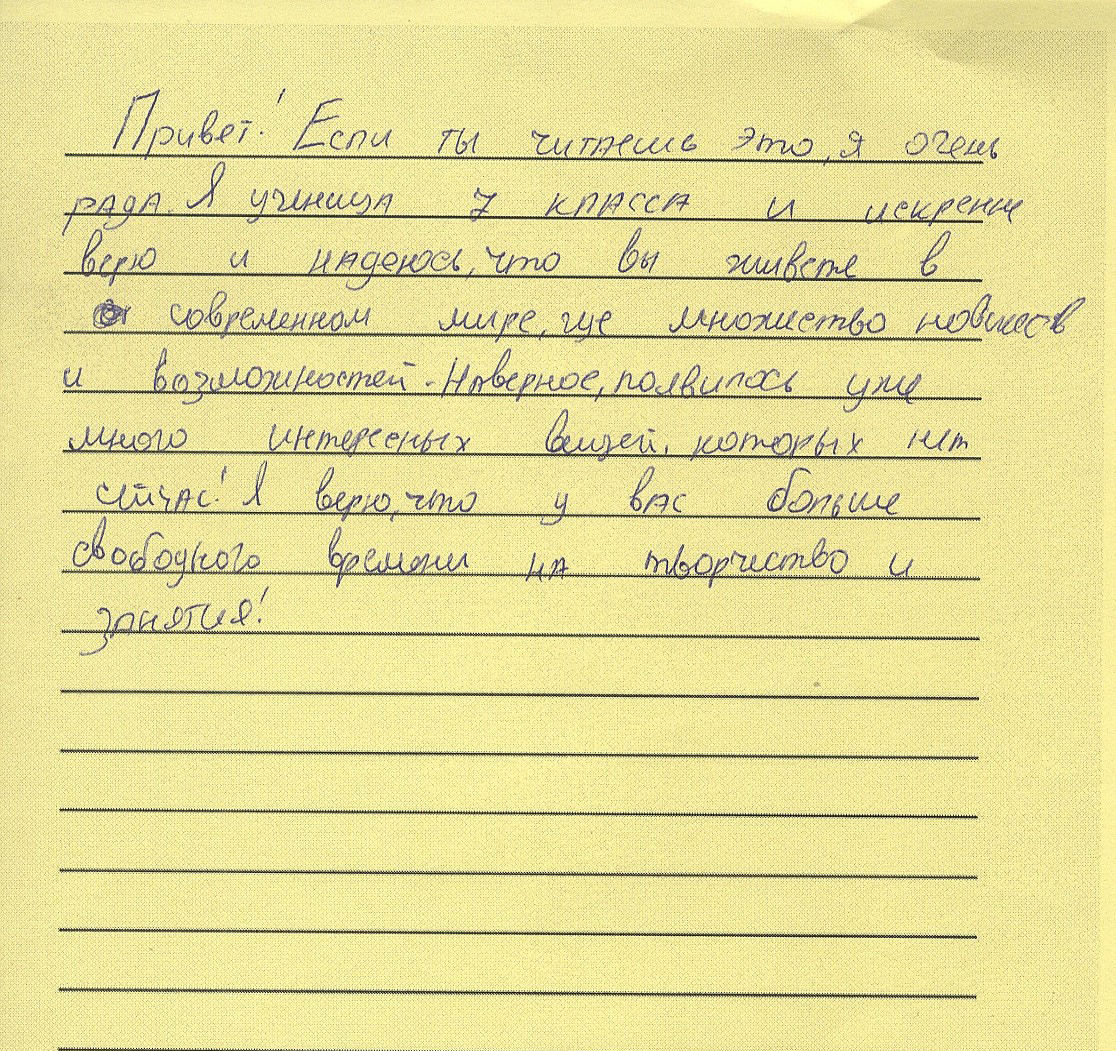 Привет! Если ты читаешь это, я очень
рада. Я ученица 7 класса и искренне
верю и надеюсь, что вы живете в
современном мире, где множество новшеств
и возможностей. Наверное, появилось уже
много интересных вещей, которых нет
сейчас! Я верю, что у вас больше
свободного времени на творчество и
занятия!